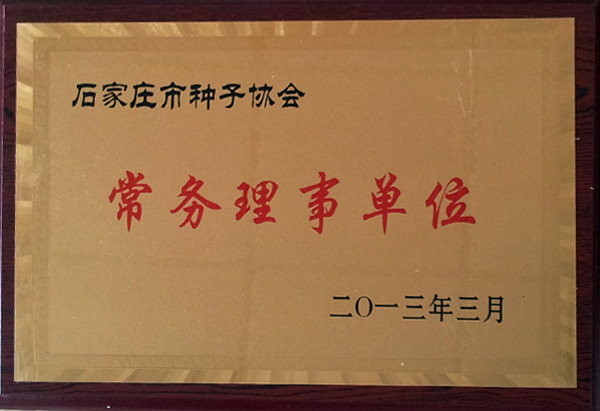 石家庄市种子协会
常务理事单位
二〇一三年三月